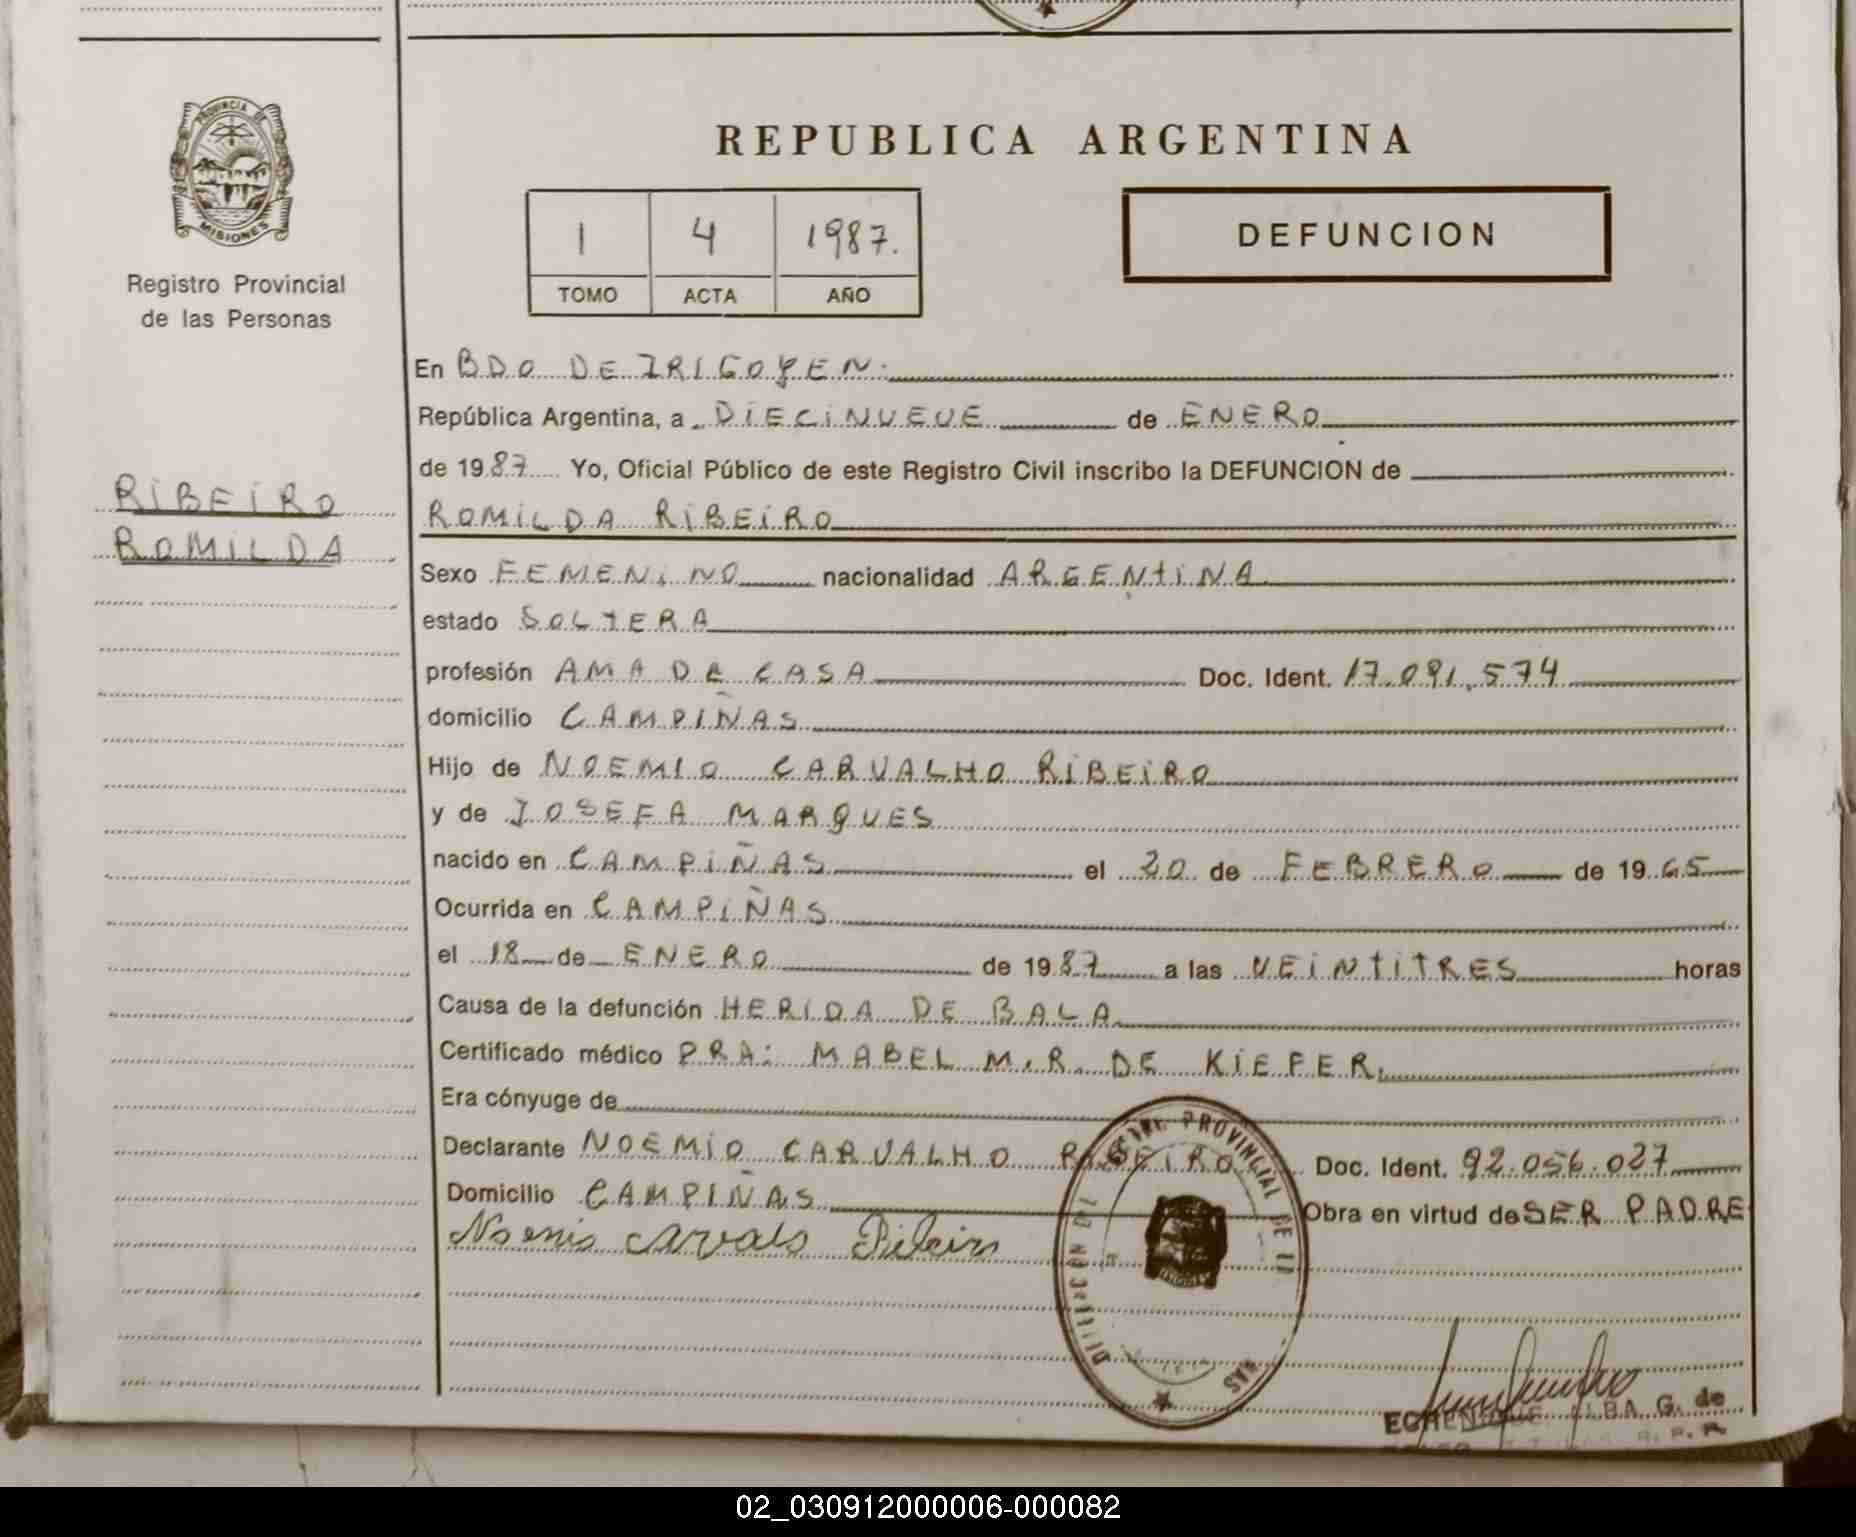 PROVINCIA DE
MISIONES
Registro Provincial
de las Personas
RIBEIRO
ROMILDA
REPUBLICA ARGENTINA
1 4 1987.
TOMO ACTA AÑO
DEFUNCION
En BDO DE IRIGOYEN.
República Argentina, a DIECINUEVE de ENERO
de 1987 Yo, Oficial Público de este Registro Civil inscribo la DEFUNCION de
ROMILDA RIBEIRO
Sexo FEMENINO nacionalidad ARGENTINA
estado SOLTERA
profesión AMA DE CASA Doc. Ident. 17.091.574
domicilio CAMPIÑAS
Hijo de NOEMIO CARVALHO RIBEIRO
y de JOSEFA MARQUES
nacido en CAMPIÑAS el 20 de FEBRERO de 1965
Ocurrida en CAMPIÑAS
el 18 de ENERO de 1987 a las VEINTITRES horas
Causa de la defunción HERIDA DE BALA
Certificado médico DRA: MABEL M.R. DE KIEFER.
Era cónyuge de
Declarante NOEMIO CARVALHO RIBEIRO Doc. Ident. 92.056.027
Domicilio CAMPIÑAS Obra en virtud de SER PADRE
DIRECCION DEL PROVINCIAL DE
ALBA G. de
02_030912000006-000082